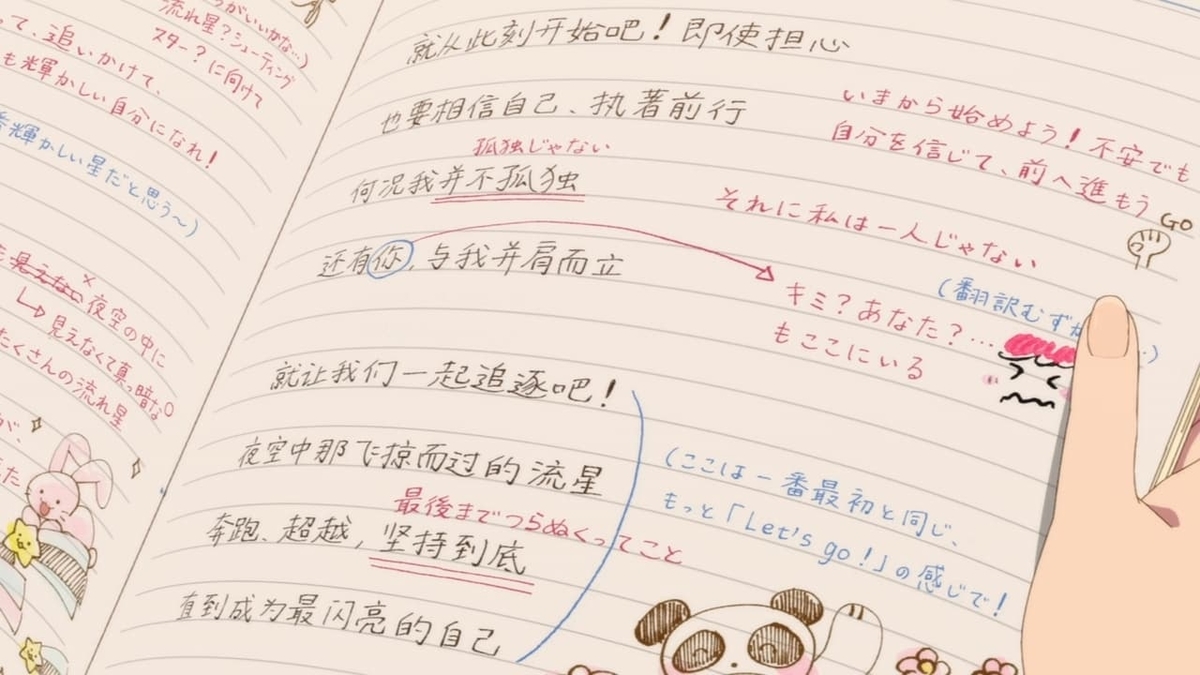 流れ星？シューティング
スター？に向けて
って、追いかけて、
も輝かしい自分になれ！
輝かしい星だと思う〜）
見えない
×
夜空の中に
見えなくて真っ暗な
たくさんの流れ星
が、
就从此刻开始吧！即使担心
也要相信自己、执著前行
孤独じゃない
何况我并不孤独
还有你，与我并肩而立
就让我们一起追逐吧！
夜空中那飞掠而过的流星
最後までつらぬくってこと
奔跑、超越，坚持到底
直到成为最闪亮的自己
いまから始めよう！不安でも
自分を信じて、前へ進もう
GO
それに私は一人じゃない
（翻訳むずか
キミ？あなた？…
もここにいる
（ここは一番最初と同じ、
もっと「Let's go！」の感じで！